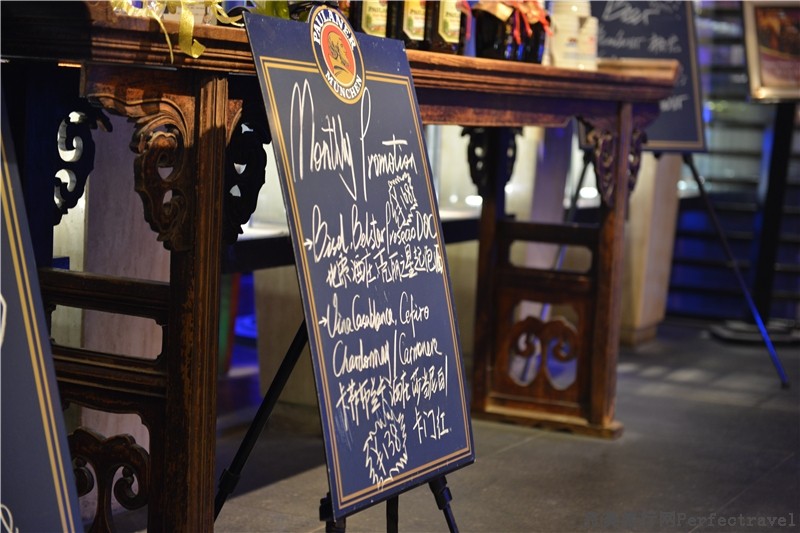 PAULANER
MÜNCHEN
Monthly Promotion
¥168
→Bisol Belstar Prosecco DOC
→Vina Casablanca, Cefiro
Chardonnay / Carmenere
卡萨布兰卡酒庄 莎当尼白/
卡门红
¥138
Beer
Perfectravel